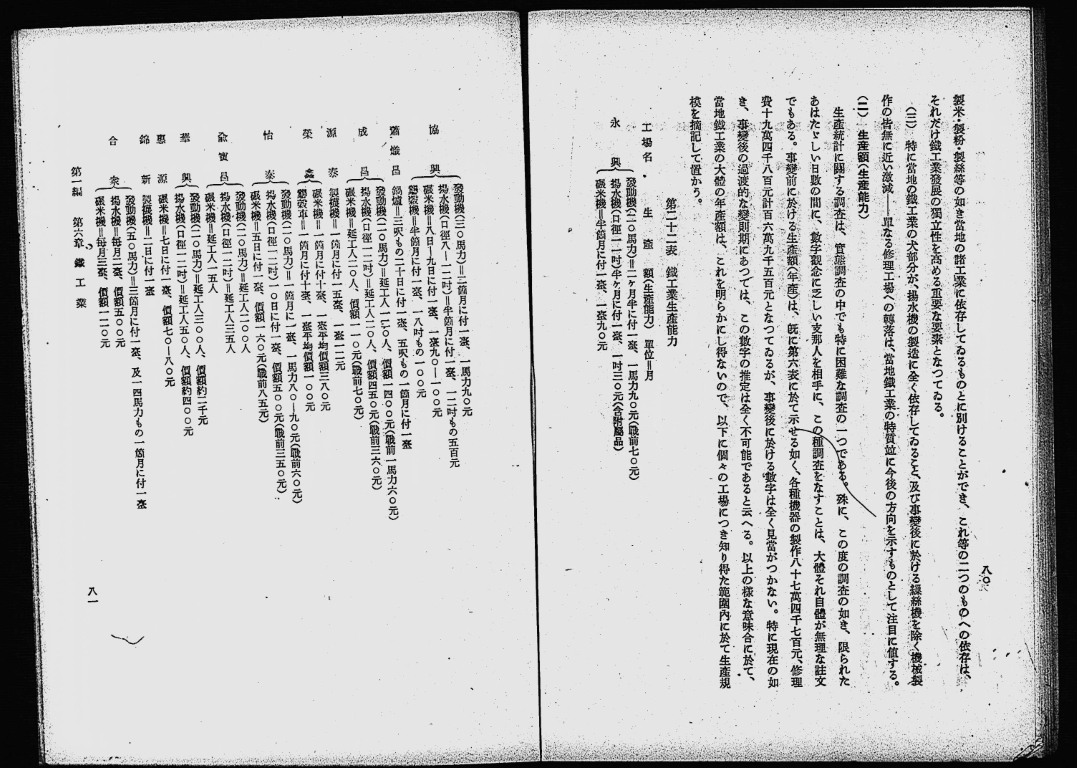 八〇
製米・製粉・製絲等の如き當地の諸工業に依存してゐるものとに別けることができ、これ等の二つのものへの依存は、
それだけ鐵工業發展の獨立性を高める重要な要素となつてゐる。
(三) 特に當地の鐵工業の大部分が、揚水機の製造に全く依存してゐること、及び事變後に於ける繰絲機を除く機械製
作の皆無に近い激減——單なる修理工場への轉落は、當地鐵工業の特質並に今後の方向を示すものとして注目に値する。
(二) 生產額(生產能力)
生產統計に關する調査は、官態調査の中でも特に困難な調査の一つである。殊に、この度の調査の如き、限られた
あはたゞしい日數の間に、數字觀念に乏しい支那人を相手に、この種調査をなすことは、大體それ自體が無理な註文
でもある。事變前に於ける生產額(年產)は、既に第六表に於て示せる如く、各種機器の製作八十七萬四千七百元、修理
費十九萬四千八百元計百六萬九千五百元となつてゐるが、事變後に於ける數字は全く見當がつかない。特に現在の如
き、事變後の過渡的な變則期にあつては、この數字の推定は全く不可能であると云へる。以上の樣な意味合に於て、
當地鐵工業の大體の年產額は、これを明らかにし得ないので、以下に個々の工場につき知り得た範圍內に於て生產規
模を摘記して置かう。
第二十二表 鐵工業生產能力
工場名 生產額(生產能力) 單位=月
永興 發動機(二〇馬力)=二ヶ月半に付一臺、一馬力九〇元(戰前七〇元)
揚水機(口徑一二吋)半ヶ月に付一臺、一吋三〇元(含附屬品)
碾米機=半箇月に付一臺、一臺九〇元
協興 發動機(三〇馬力)=二箇月に付一臺、一馬力九〇元
揚水機(口徑八—一二吋)=半箇月に付一臺、一二吋もの五百元
碾米機=八日—九日に付一臺、一臺九〇—一〇〇元
礱穀機=半箇月に付一臺、一八吋もの一〇〇元
鍋爐=三呎もの二十日に付一臺、五呎もの一箇月に付一臺
成昌 發動機(二〇馬力)=延工人一五〇人、價額一四〇〇元(戰前一馬力六〇元)
揚水機(口徑一二吋)=延工人二〇人、價額四五〇元(戰前三六〇元)
碾米機=延工人一〇人、價額一一〇元(戰前七〇元)
源泰 製繩機=一箇月に付一五臺、一臺一二元
榮鑫 碾米機=一箇月に付十臺、一臺平均價額三八〇元
礱穀車=一箇月に付十臺、一臺平均價額一〇〇元
怡泰 發動機(二〇馬力)=一箇月に付一臺、一馬力八〇—九〇元(戰前六〇元)
揚水機(口徑一二吋)一〇日に付一臺、價額五〇〇元(戰前三五〇元)
碾米機=五日に付一臺、價額一六〇元(戰前八五元)
俞寶昌 發動機(二〇馬力)=延工人二〇〇人
揚水機(口徑一二吋)=延工人三五人
碾米機=延工人一五人
華興 發動機(二〇馬力)=延工人三〇〇人、價額約二千元
揚水機(口徑一二吋)=延工人五〇人、價額約四〇〇元
惠源 碾米機=七日に付一臺、價額七〇—八〇元
錦新 製繩機=二日に付一臺
合衆 發動機(五〇馬力)=三箇月に付一臺、及一四馬力もの一箇月に付一臺
揚水機=每月二臺、價額五〇〇元
碾米機=每月三臺、價額一二〇元
第一編 第六章 鐵工業
八一